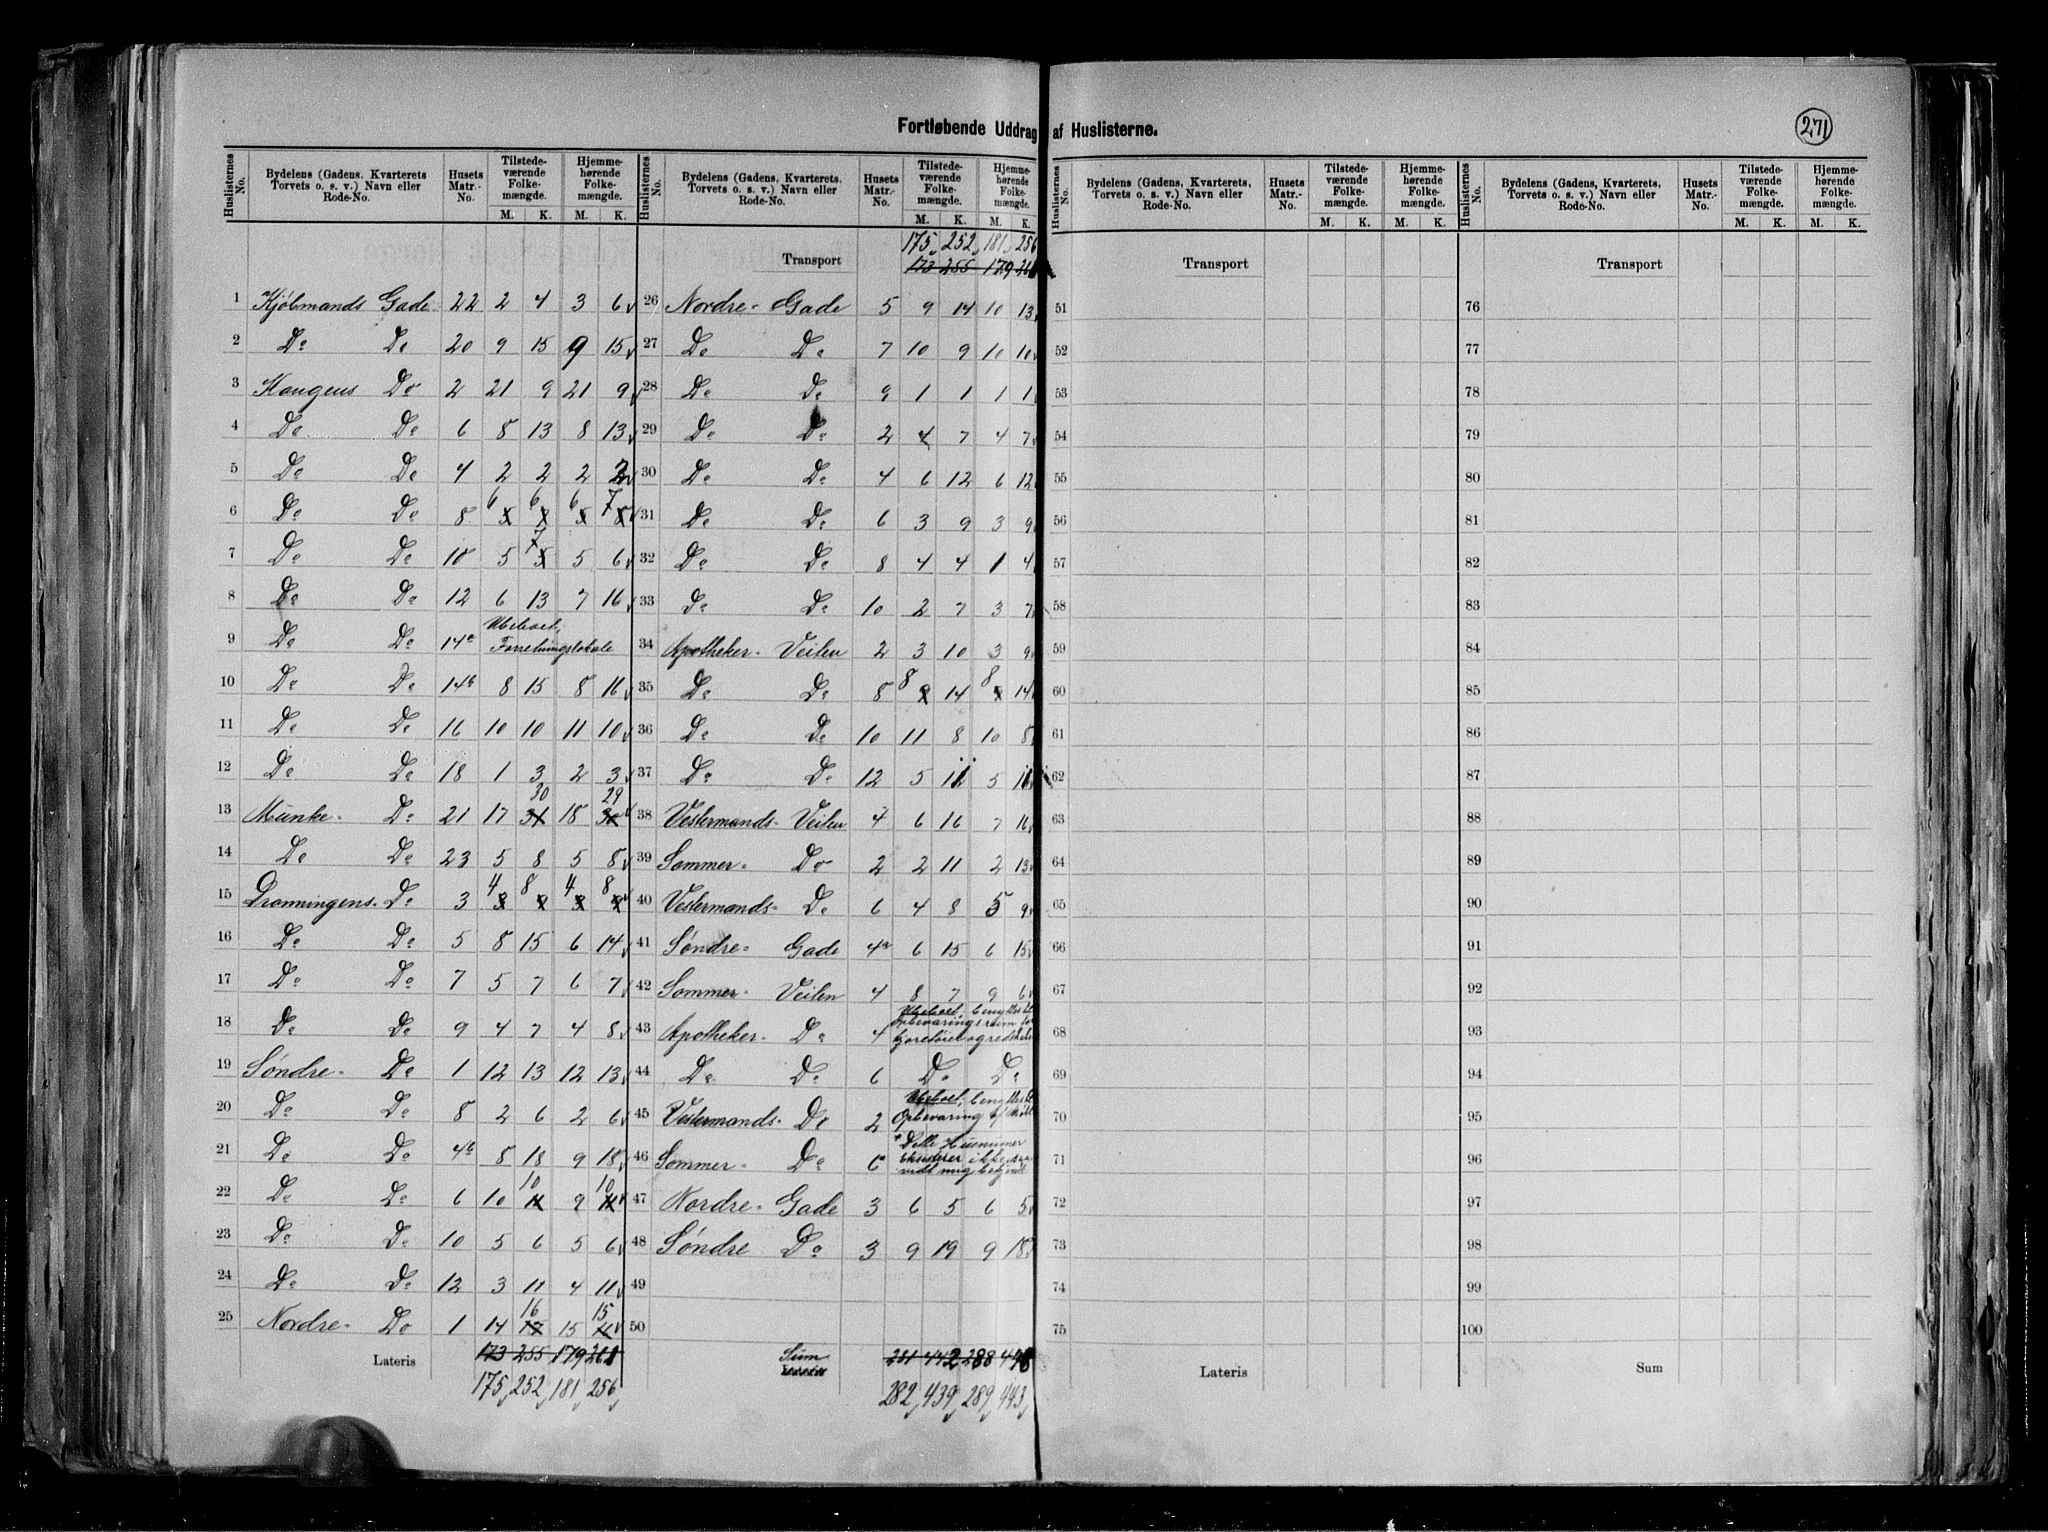 Fortløbende Uddrag af Huslisterne.
271
Huslisternes No. | Bydelens (Gadens, Kvarterets, Torvets o. s. v.) Navn eller Rode-No. | Husets Matr.-No. | Tilstedeværende Folkemængde. M. K. | Hjemmehørende Folkemængde. M. K.
1 Kjøbmands Gade 22 2 4 3 6
2 Do Do 20 9 15 9 15
3 Kongens Do 2 21 9 21 9
4 Do Do 6 8 13 8 13
5 Do Do 4 2 2 2 2
6 Do Do 8 6 6 6 7
7 Do Do 10 5 7 5 6
8 Do Do 12 6 13 7 16
9 Do Do 14a Ubeboet, Forretningslokale
10 Do Do 14b 8 15 8 16
11 Do Do 16 10 10 11 10
12 Do Do 18 1 3 2 3
13 Munke- Do 21 17 30 18 29
14 Do Do 23 5 8 5 8
15 Dronningens- Do 3 4 8 4 8
16 Do Do 5 8 15 6 14
17 Do Do 7 5 7 6 7
18 Do Do 9 4 7 4 8
19 Søndre- Do 1 12 13 12 13
20 Do Do 8 2 6 2 6
21 Do Do 4b 8 18 9 18
22 Do Do 6 10 10 9 10
23 Do Do 10 5 6 5 6
24 Do Do 12 3 11 4 11
25 Nordre- Do 1 14 16 15 15
Lateris 173 255 179 261
175 252 181 256
Huslisternes No. | Bydelens (Gadens, Kvarterets, Torvets o. s. v.) Navn eller Rode-No. | Husets Matr.-No. | Tilstedeværende Folkemængde. M. K. | Hjemmehørende Folkemængde. M. K.
175 252 181 256
Transport 173 255 179 261
26 Nordre- Gade 5 9 14 10 13
27 Do Do 7 10 9 10 10
28 Do Do 9 1 1 1 1
29 Do Do 2 4 7 4 7
30 Do Do 4 6 12 6 12
31 Do Do 6 3 9 3 9
32 Do Do 8 4 4 1 4
33 Do Do 10 2 7 3 7
34 Apotheker- Veiten 2 3 10 3 9
35 Do Do 8 8 14 8 14
36 Do Do 10 11 8 10 8
37 Do Do 12 5 11 5 11
38 Vestermands- Veiten 4 6 16 7 16
39 Sommer- Do 2 2 11 2 13
40 Vestermands- Do 6 4 8 5 9
41 Søndre- Gade 4a 6 15 6 15
42 Sommer- Veiten 4 8 7 9 6
43 Apotheker- Do 4 Ubeboet, benyttes til opbevaringsrum for kjøretøier og redskaber
44 Do Do 6 Do Do
45 Vestermands- Do 2 Ubeboet, benyttes til Opbevaring af
46 Sommer- Do 6 * Dette Husnumer eksisterer ikke saavidt mig bekjendt
47 Nordre- Gade 3 6 5 6 5
48 Søndre Do 3 9 19 9 18
49
50
Sum 281 442 288 448
282 439 289 443
Huslisternes No. | Bydelens (Gadens, Kvarterets, Torvets o. s. v.) Navn eller Rode-No. | Husets Matr.-No. | Tilstedeværende Folkemængde. M. K. | Hjemmehørende Folkemængde. M. K.
Transport
51
52
53
54
55
56
57
58
59
60
61
62
63
64
65
66
67
68
69
70
71
72
73
74
75
Lateris
Huslisternes No. | Bydelens (Gadens, Kvarterets, Torvets o. s. v.) Navn eller Rode-No. | Husets Matr.-No. | Tilstedeværende Folkemængde. M. K. | Hjemmehørende Folkemængde. M. K.
Transport
76
77
78
79
80
81
82
83
84
85
86
87
88
89
90
91
92
93
94
95
96
97
98
99
100
Sum